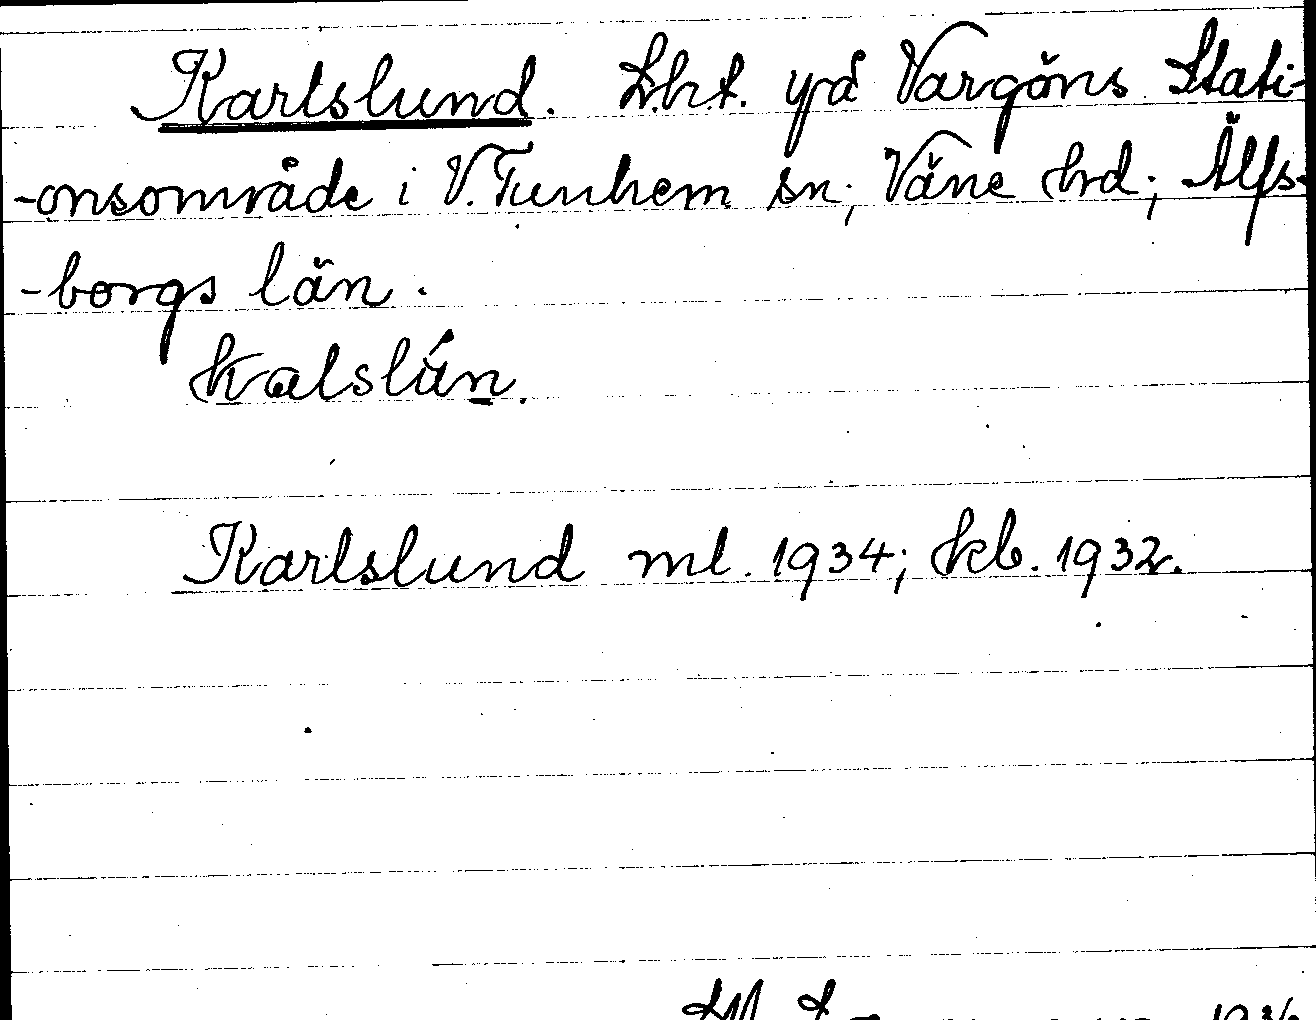 Karlslund. L.h.t. på Vargöns Stati-
-onsområde i V. Tunhem sn; Väne hrd; Älfs-
-borgs län.
kalslún.
Karlslund ml. 1934; kb. 1932.